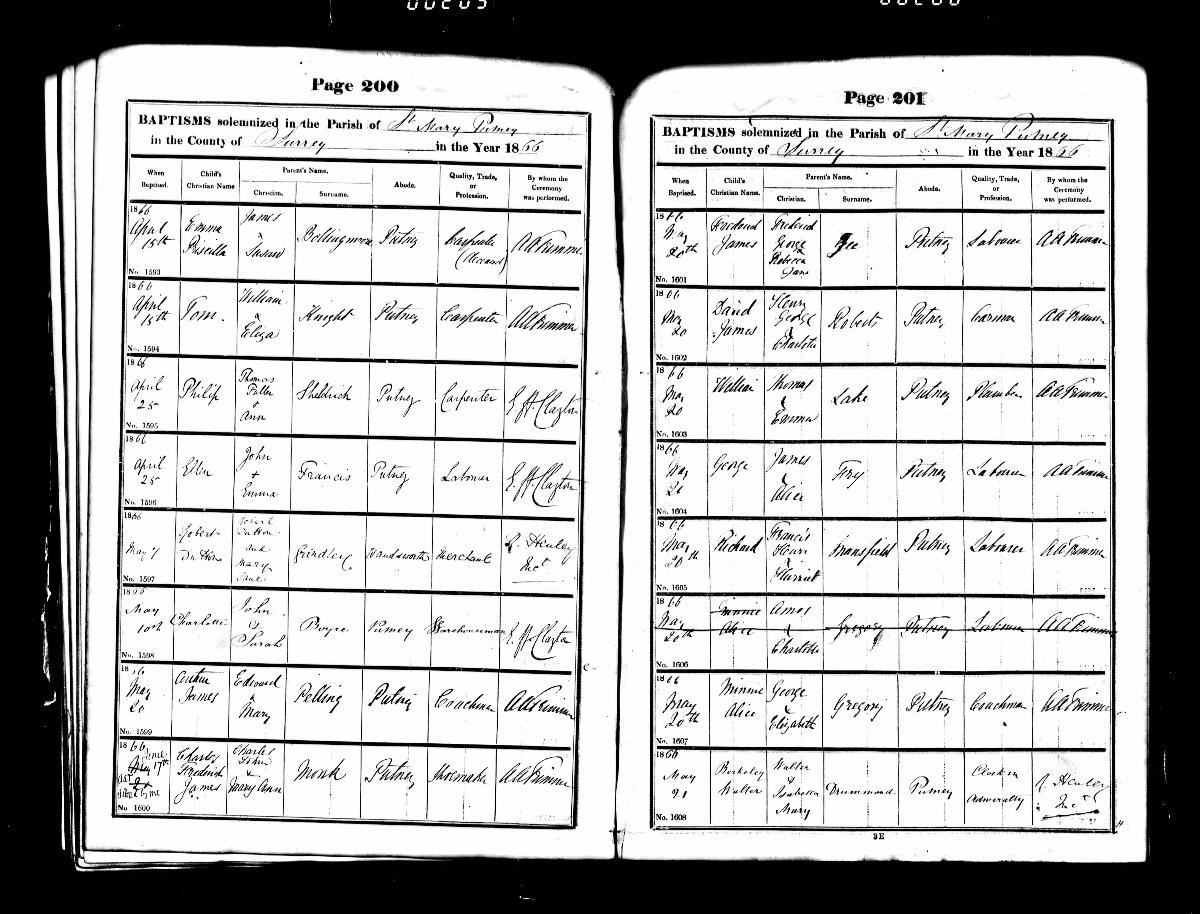 Page 200
BAPTISMS solemnized in the Parish of St Mary Putney
in the County of Surrey in the Year 1866
When Baptised. Child's Christian Name Parent's Name. Christian. Surname. Abode. Quality, Trade, or Profession. By whom the Ceremony was performed.
1866 April 15th No. 1593 Emma Priscilla James & Susan Putney Carpenter (deceased) AATrimmer
1866 April 15th No. 1594 Tom. William & Eliza Knight Putney Carpenter AATrimmer
1866 April 25 No. 1595 Philip Thomas Fuller & Ann Sheldrick Putney Carpenter E.H.Clayton
1866 April 25 No. 1596 Ellen John + Emma Francis Putney Labourer E.H.Clayton
1866 May 7 No. 1597 Robert Dutton Robert Dutton and Mary Jane Grindley Wandsworth Merchant R. Henley Inct
1866 May 10th No. 1598 Charlotte John & Sarah Boyce Putney Warehouseman E.H.Clayton
1866 May 20 No. 1599 Arthur James Edward & Mary Pelling Putney Coachman AATrimmer
1866 June 17th No. 1600 Charles Frederick James Charles John & Mary Ann Monk Putney Shoemaker AATrimmer
Page 201
BAPTISMS solemnized in the Parish of St Mary Putney
in the County of Surrey in the Year 1866
When Baptised. Child's Christian Name. Parent's Name. Christian. Surname. Abode. Quality, Trade, or Profession. By whom the Ceremony was performed.
1866 May 20th No. 1601 Frederick James Frederick George & Rebecca Jane Putney Labourer AATrimmer
1866 May 20 No. 1602 David James Henry George & Charlotte Roberts Putney Carman AATrimmer
1866 May 20 No. 1603 William Thomas & Emma Lake Putney Plumber AATrimmer
1866 May 20 No. 1604 George James & Alice Fry Putney Labourer AATrimmer
1866 May 20th No. 1605 Richard Francis Henri & Harriet Fransfield Putney Labourer AATrimmer
1866 May 20th No. 1606 Minnie Alice Amos & Charlotte Gregory Putney Labourer AATrimmer
1866 May 20th No. 1607 Minnie Alice George & Elizabeth Gregory Putney Coachman AATrimmer
1866 May 21 No. 1608 Berkeley Walter Walter & Isabella Mary Drummond Putney Clerk in Admiralty R. Henley Inct
3E